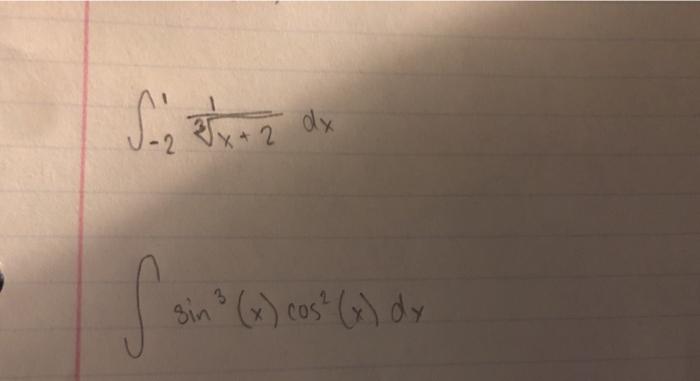 ∫₋₂¹ 1/∛(x+2) dx
∫ sin³(x) cos²(x) dx